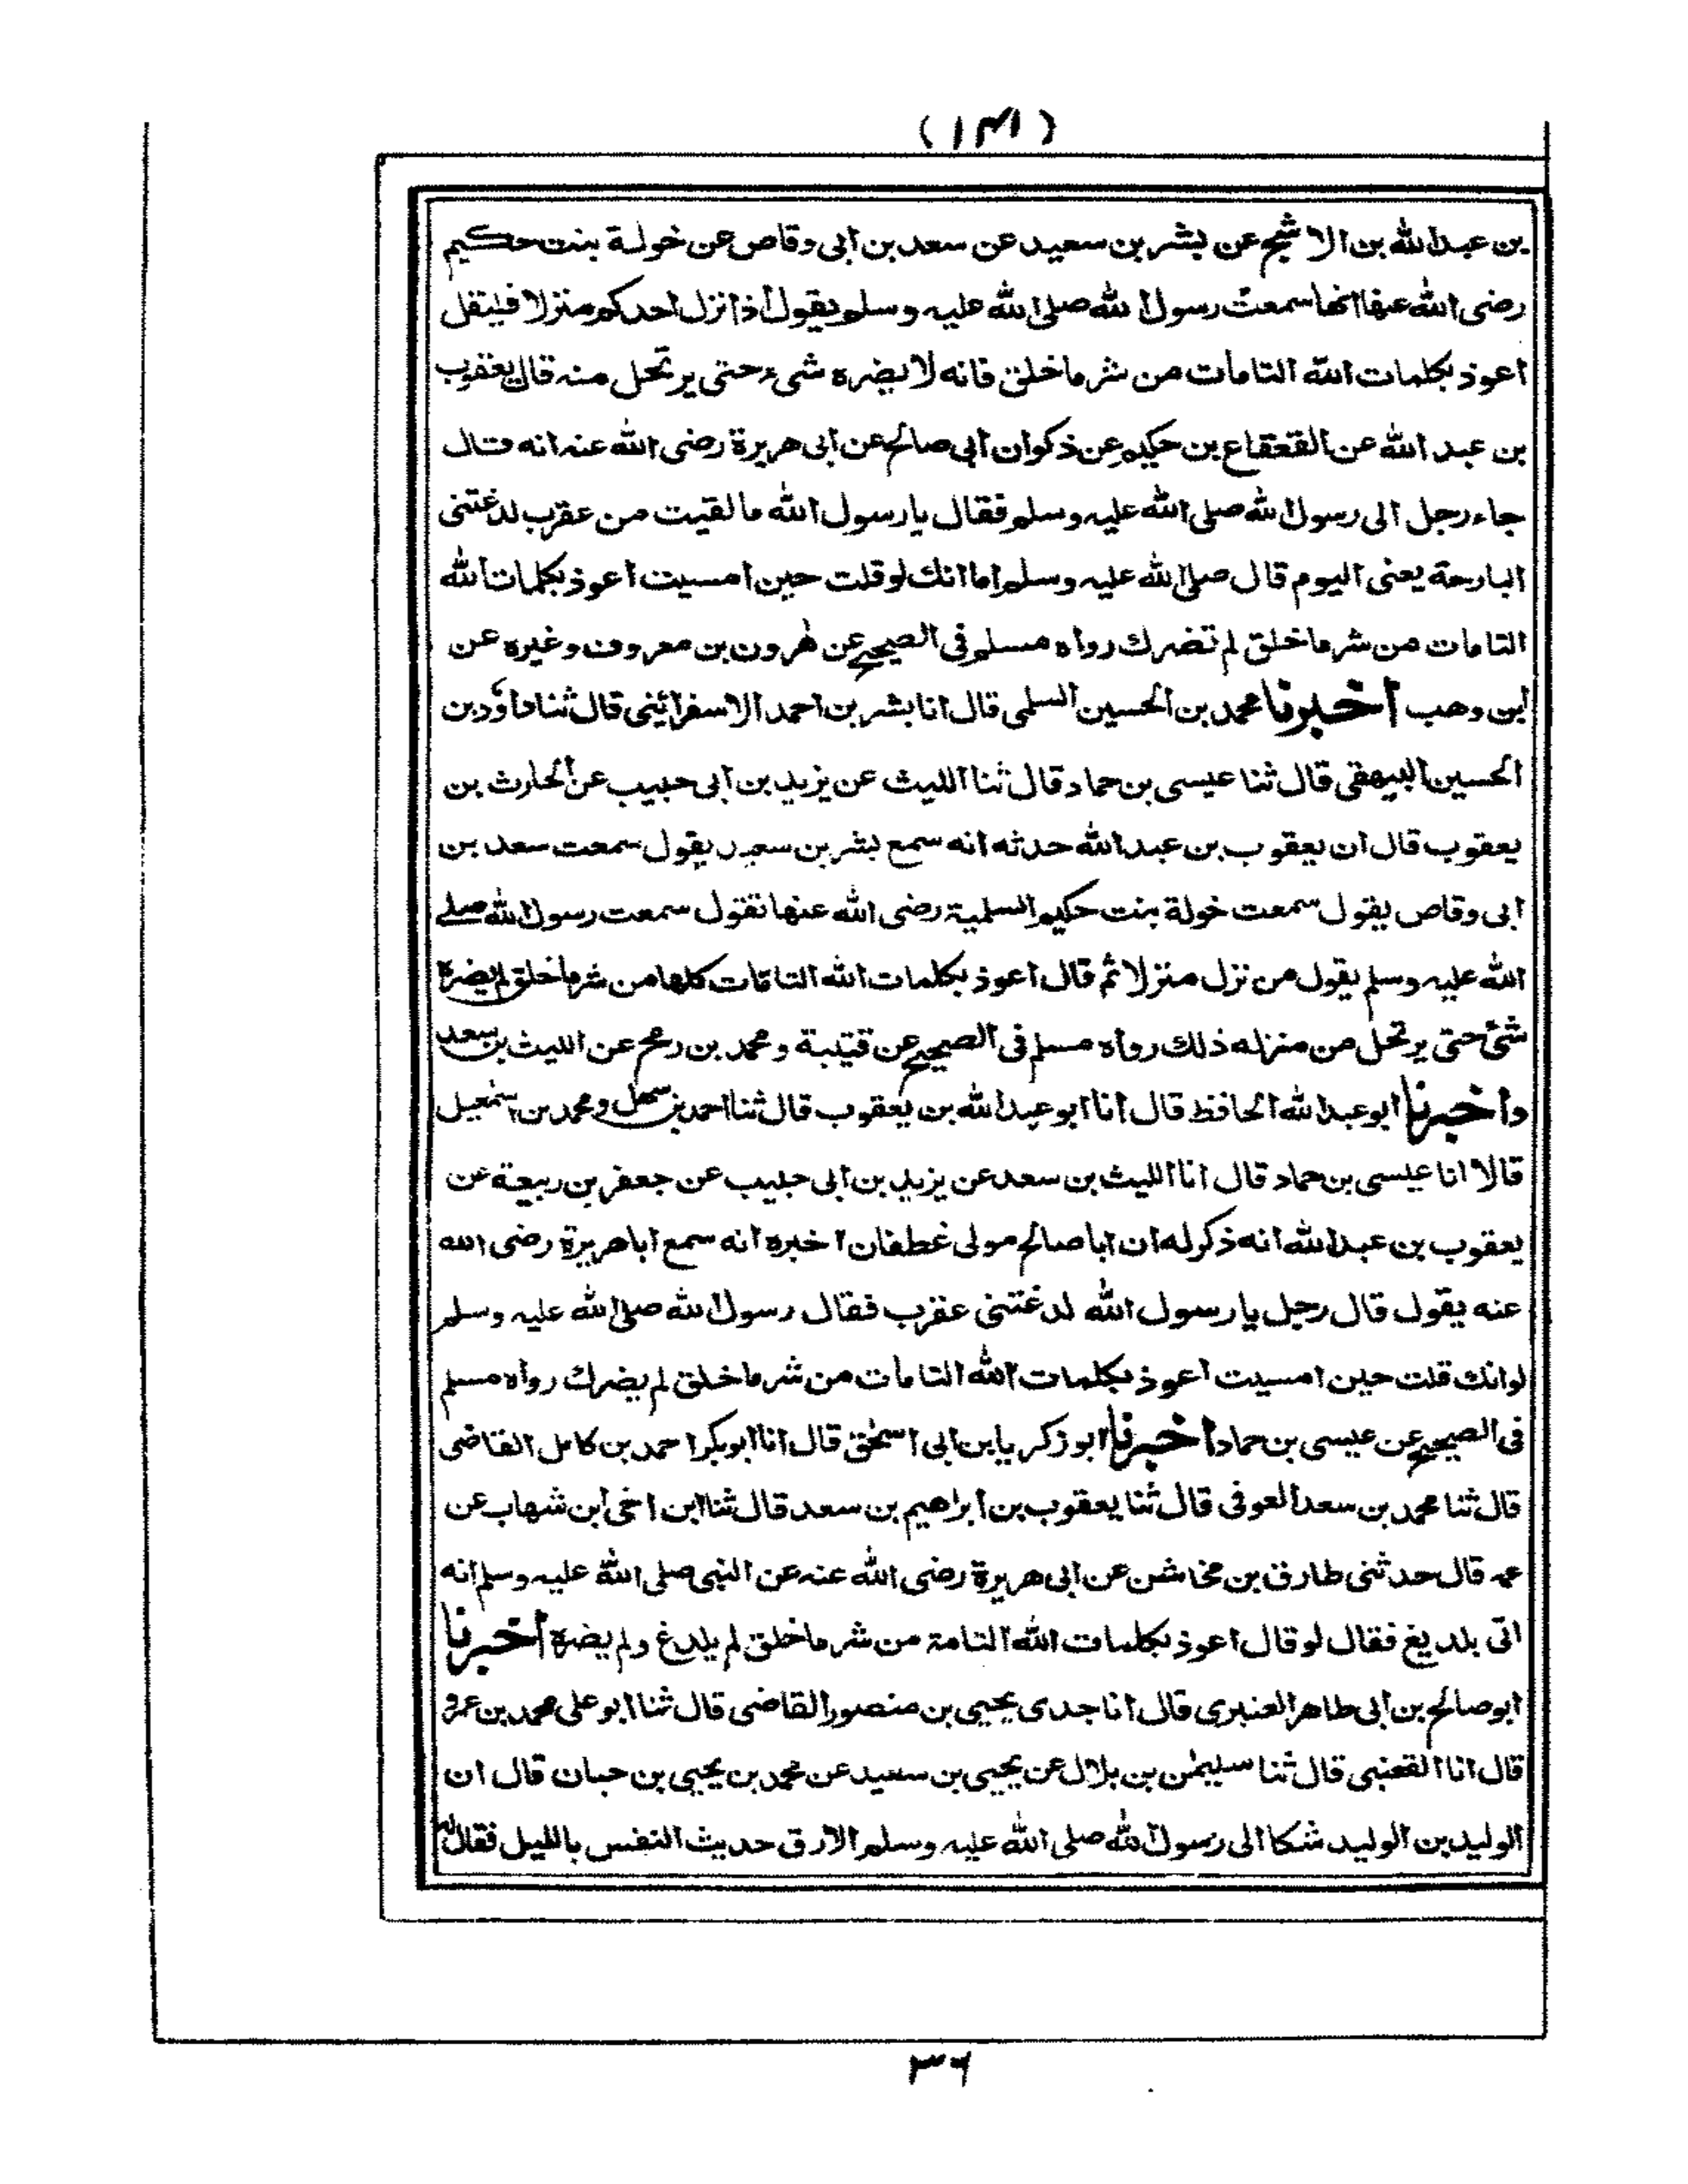 (١٣١)
بن عبد الله بن الاشج عن بشر بن سعيد عن سعد بن ابى وقاص عن خولة بنت حكيم
رضى الله عنها انها سمعت رسول الله صلى الله عليه وسلم يقول اذا نزل احدكم منزلا فليقل
اعوذ بكلمات الله التامات من شر ما خلق فانه لا يضره شىء حتى يرتحل منه قال يعقوب
بن عبد الله عن القعقاع بن حكيم عن ذكوان ابى صالح عن ابى هريرة رضى الله عنه انه قال
جاء رجل الى رسول الله صلى الله عليه وسلم فقال يا رسول الله ما لقيت من عقرب لدغتنى
البارحة يعنى اليوم قال صلى الله عليه وسلم اما انك لو قلت حين امسيت اعوذ بكلمات الله
التامات من شر ما خلق لم تضرك رواه مسلم فى الصحيح عن هرون بن معروف وغيره عن
ابن وهب أخبرنا محمد بن الحسين السلمى قال انا بشر بن احمد الاسفرائينى قال ثنا داؤد بن
الحسين البيهقى قال ثنا عيسى بن حماد قال ثنا الليث عن يزيد بن ابى حبيب عن الحارث بن
يعقوب قال ان يعقوب بن عبد الله حدثه انه سمع بشر بن سعيد يقول سمعت سعد بن
ابى وقاص يقول سمعت خولة بنت حكيم السلمية رضى الله عنها تقول سمعت رسول الله صلى
الله عليه وسلم يقول من نزل منزلا ثم قال اعوذ بكلمات الله التامات كلها من شر ما خلق لم يضره
شئ حتى يرتحل من منزله ذلك رواه مسلم فى الصحيح عن قتيبة ومحمد بن رمح عن الليث بن سعد
وأخبرنا ابو عبد الله الحافظ قال انا ابو عبد الله بن يعقوب قال ثنا احمد بن سهل ومحمد بن اسمعيل
قالا انا عيسى بن حماد قال انا الليث بن سعد عن يزيد بن ابى حبيب عن جعفر بن ربيعة عن
يعقوب بن عبد الله انه ذكر له ان ابا صالح مولى غطفان اخبره انه سمع ابا هريرة رضى الله
عنه يقول قال رجل يا رسول الله لدغتنى عقرب فقال رسول الله صلى الله عليه وسلم
لو انك قلت حين امسيت اعوذ بكلمات الله التامات من شر ما خلق لم يضرك رواه مسلم
فى الصحيح عن عيسى بن حماد أخبرنا ابو زكريا بن ابى اسحق قال انا ابو بكر احمد بن كامل القاضى
قال ثنا محمد بن سعد العوفى قال ثنا يعقوب بن ابراهيم بن سعد قال ثنا ابن اخى ابن شهاب عن
عمه قال حدثنى طارق بن مخاشن عن ابى هريرة رضى الله عنه عن النبى صلى الله عليه وسلم انه
اتى بلديغ فقال لو قال اعوذ بكلمات الله التامة من شر ما خلق لم يلدغ ولم يضره أخبرنا
ابو صالح بن ابى طاهر العنبرى قال انا جدى يحيى بن منصور القاضى قال ثنا ابو على محمد بن عمرو
قال انا القعنبى قال ثنا سليمن بن بلال عن يحيى بن سعيد عن محمد بن يحيى بن حبان قال ان
الوليد بن الوليد شكا الى رسول الله صلى الله عليه وسلم الارق حديث النفس بالليل فقال له
٣٦